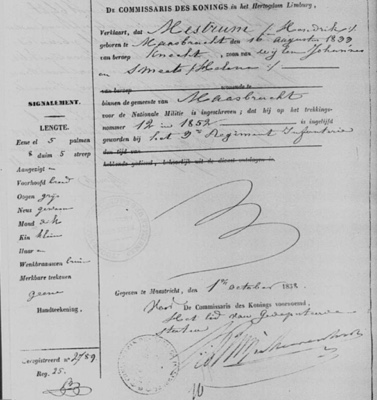 DE COMMISSARIS DES KONINGS in het Hertogdom Limburg,
Verklaart, dat Mestrum /: Hendrik :/
geboren te Maasbracht den 16 augustus 1833
van beroep Knecht, zoon van wijlen Johannes
en Smeets /: Helena :/
van beroep wonende te
binnen de gemeente van Maasbracht
voor de Nationale Militie is ingeschreven; dat hij op het trekkings-
nummer 12 in 1852 is ingelijfd
geworden bij het 2e Regiment Infanterie
den tijd van
SIGNALEMENT.
LENGTE.
Eene el 5 palmen
8 duim 5 streep
Aangezigt
Voorhoofd
Oogen grijs
Neus gewoon
Mond
Kin klein
Haar
Wenkbraauwen bruin
Merkbare teekenen
geene
Handteekening.
Geregistreerd no. 2789
Reg. 25.
Gegeven te Maastricht den 1e october 1858.
Voor De Commissaris des Konings voornoemd.
Het lid van Gedeputeerde
Staten
10